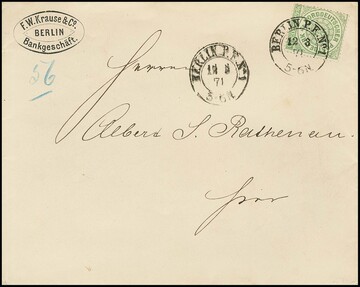 F.W. Krause & Co.
BERLIN
Bankgeschäft.
56
BERLIN P.E. No 1
12 3
71
5-6N
BERLIN P.E. No 1
12 3
71
5-6N
NORDDEUTSCHER
Herren
Albert S. Rathenau.
hier